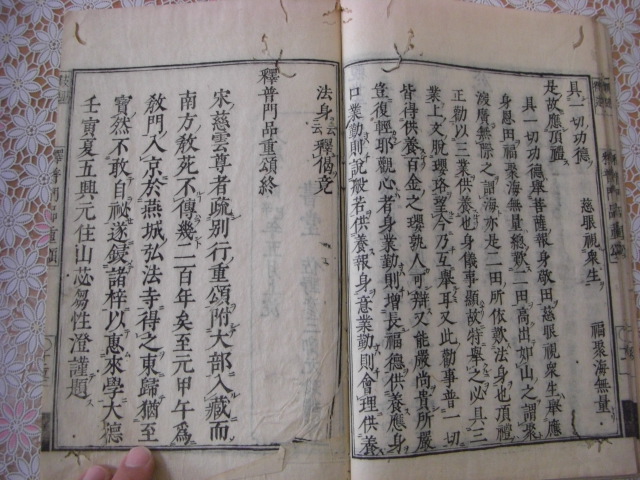 具一切功德 慈眼視衆生 福聚海無量
是故應頂禮
具一切功德擧菩薩報身敬田慈眼視衆生擧應
身恩田福聚海無量總歎二田高出如山之謂聚
深廣無際之謂海亦是二田所依歎法身也頂禮
正勸以三業供養也身儀事顯故特擧之必具三
業上文脫瓔珞聖今乃互擧耳又此勸事普一切
皆得供養百金之瓔孰人可辯又能嚴尚貴所嚴
豈復輕耶觀心者身業勤則增長福德供養應身
口業勤則說般若供養報身意業勤則會理供養
法身云云釋偈竟
釋普門品重頌終
宋慈雲尊者疏別行重頌附大部入藏而
南方教死不傳幾二百年矣至元甲午爲
教門入京於燕城弘法寺得之東歸猶至
寶然不敢自祕遂鋟諸梓以惠來學大德
壬寅夏五興元住山苾蒭性澄謹題